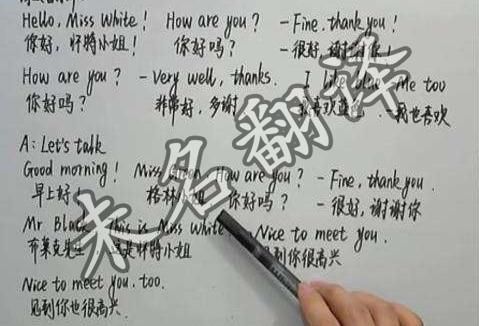 Hello, Miss White! How are you? - Fine, thank you!
你好,怀特小姐! 你好吗? - 很好,谢谢你!
How are you? - Very well, thanks. I like blue. - Me too
你好吗? 非常好,多谢 我喜欢蓝色 - 我也喜欢
A: Let's talk
Good morning! Miss Green, How are you? - Fine, thank you.
早上好! 格林小姐 你好吗? - 很好,谢谢你
Mr Black, This is Miss White. Nice to meet you.
布莱克先生 这是怀特小姐 见到你很高兴
Nice to meet you, too.
见到你也很高兴
未名翻译